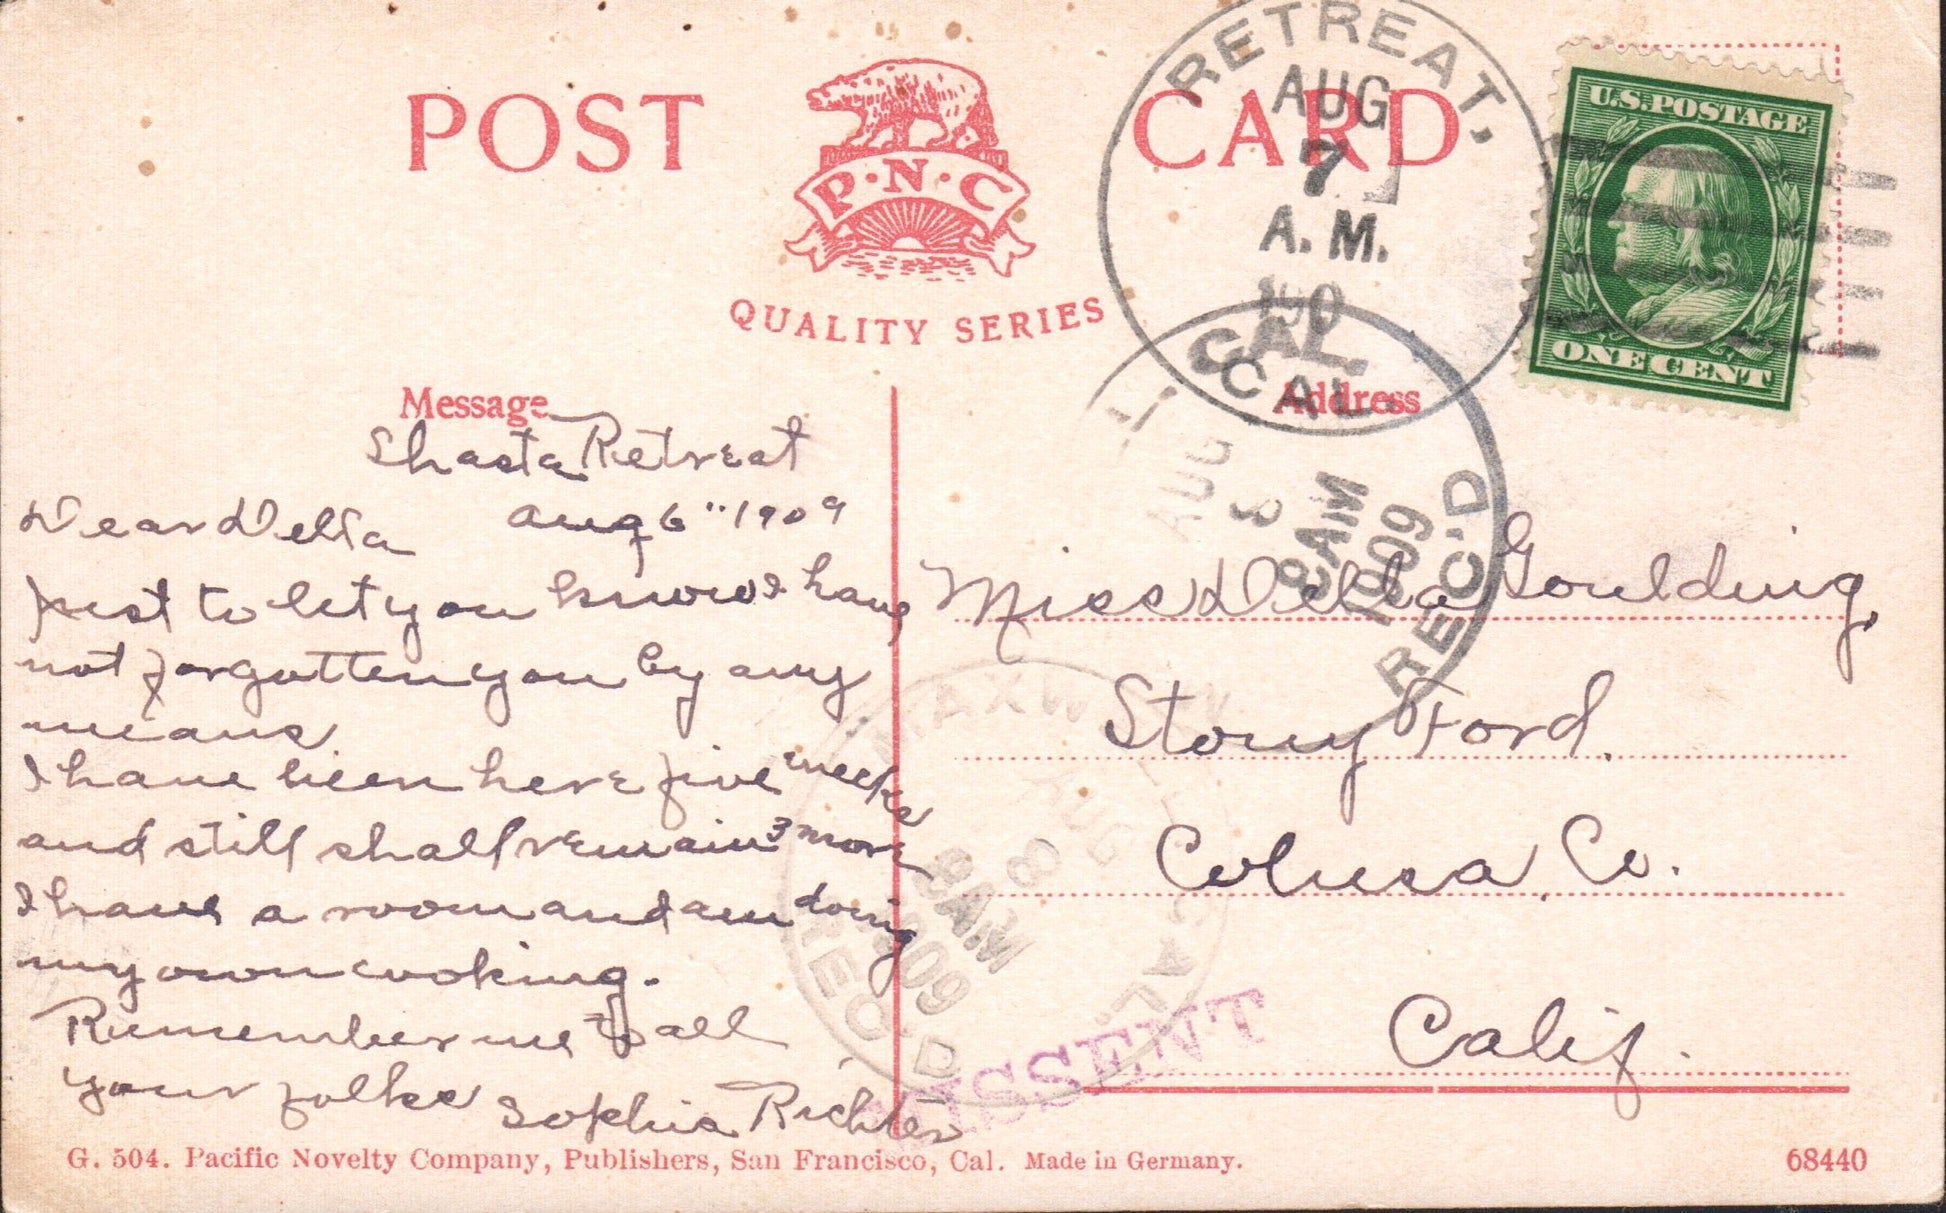 POST CARD
P·N·C
QUALITY SERIES
RETREAT,
AUG
7
A.M.
190
CAL.
U.S. POSTAGE
ONE CENT
Message
Address
Shasta Retreat
Aug 6" 1909
Dear Della
just to let you know I have
not forgotten you by any
means
I have been here five weeks
and still shall remain 3 more
I have a room and am doing
my own cooking.
Remember me to all
your folks Sophia Richter
Miss Della Goulding,
Stony Ford.
Colusa, Co.
Calif.
CAL.
AUG
8
8 AM
1909
REC'D
MAXWELL
CAL.
AUG
8
8 AM
1909
REC'D
MISSENT
G. 504. Pacific Novelty Company, Publishers, San Francisco, Cal. Made in Germany.
68440